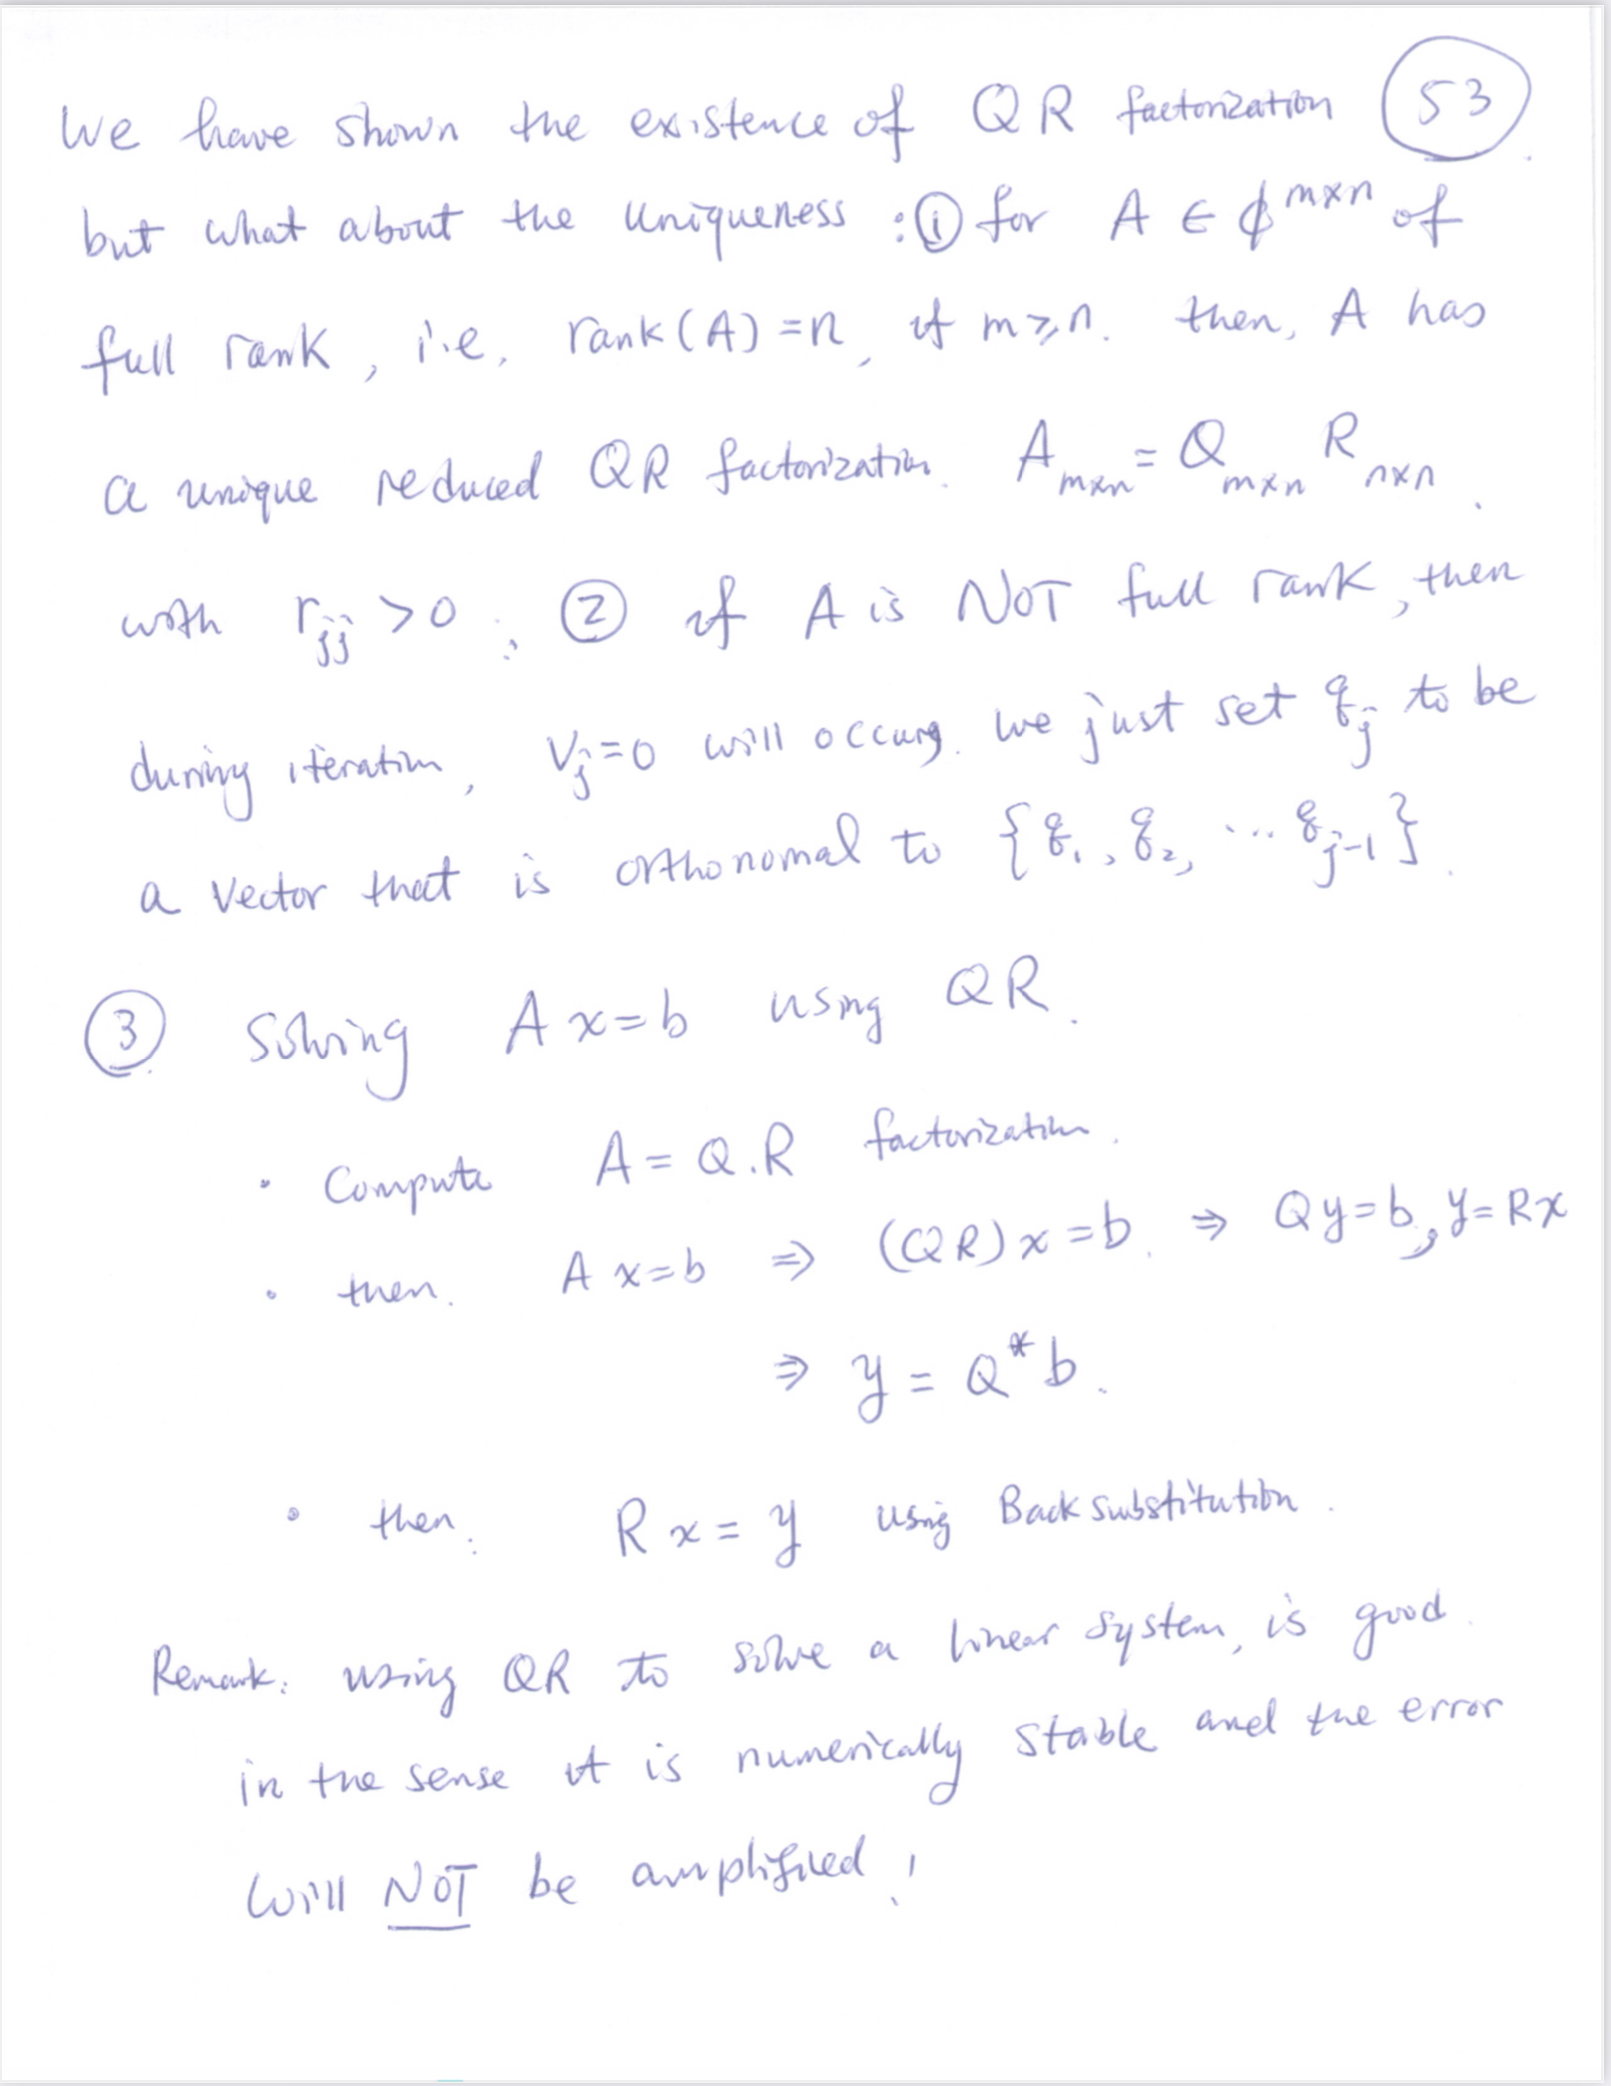 We have shown the existence of QR factorization 53
but what about the Uniqueness : ① for A ∈ ₵^{m×n} of
full rank, i.e. rank(A) = n, if m ≥ n. then, A has
a unique reduced QR factorization. A_{m×n} = Q_{m×n} R_{n×n}.
with r_{jj} > 0 ; ② if A is NOT full rank, then
during iteration, v_j = 0 will occurs. we just set q_j to be
a vector that is orthonomal to {q_1, q_2, ... q_{j-1}}.
③ Solving Ax = b using QR.
• Compute A = Q.R factorization.
• then. Ax = b ⇒ (QR)x = b. ⇒ Qy = b, y = Rx
⇒ y = Q*b.
• then: Rx = y using Back substitution.
Remark: using QR to solve a linear system, is good
in the sense it is numerically stable and the error
Will NOT be amplified!